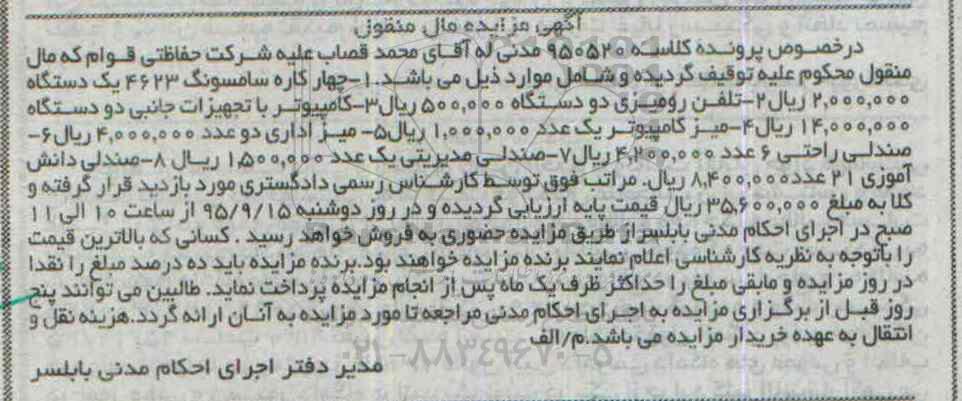 آگهی مزایده مال منقول
درخصوص پرونده کلاسه ۹۵۰۵۲۰ مدنی له آقای محمد قصاب علیه شرکت حفاظتی قوام که مال
منقول محکوم علیه توقیف گردیده و شامل موارد ذیل می باشد.۱-چهار کاره سامسونگ ۴۶۲۳ یک دستگاه
۲,۰۰۰,۰۰۰ ریال۲-تلفن رومیزی دو دستگاه ۵۰۰,۰۰۰ ریال۳-کامپیوتر با تجهیزات جانبی دو دستگاه
۱۴,۰۰۰,۰۰۰ ریال۴-میز کامپیوتر یک عدد ۱,۰۰۰,۰۰۰ ریال۵- میز اداری دو عدد ۴,۰۰۰,۰۰۰ ریال۶-
صندلی راحتی ۶ عدد ۴,۲۰۰,۰۰۰ ریال۷-صندلی مدیریتی یک عدد ۱,۵۰۰,۰۰۰ ریال ۸-صندلی دانش
آموزی ۲۱ عدد۸,۴۰۰,۰۰۰ ریال. مراتب فوق توسط کارشناس رسمی دادگستری مورد بازدید قرار گرفته و
کلا به مبلغ ۳۵,۶۰۰,۰۰۰ ریال قیمت پایه ارزیابی گردیده و در روز دوشنبه ۹۵/۹/۱۵ از ساعت ۱۰ الی ۱۱
صبح در اجرای احکام مدنی بابلسر از طریق مزایده حضوری به فروش خواهد رسید . کسانی که بالاترین قیمت
را باتوجه به نظریه کارشناسی اعلام نمایند برنده مزایده خواهند بود.برنده مزایده باید ده درصد مبلغ را نقدا
در روز مزایده و مابقی مبلغ را حداکثر ظرف یک ماه پس از انجام مزایده پرداخت نماید. طالبین می توانند پنج
روز قبل از برگزاری مزایده به اجرای احکام مدنی مراجعه تا مورد مزایده به آنان ارائه گردد.هزینه نقل و
انتقال به عهده خریدار مزایده می باشد.م/الف
۰۲۱-۸۸۳۴۹۶۷۰-۵
مدیر دفتر اجرای احکام مدنی بابلسر